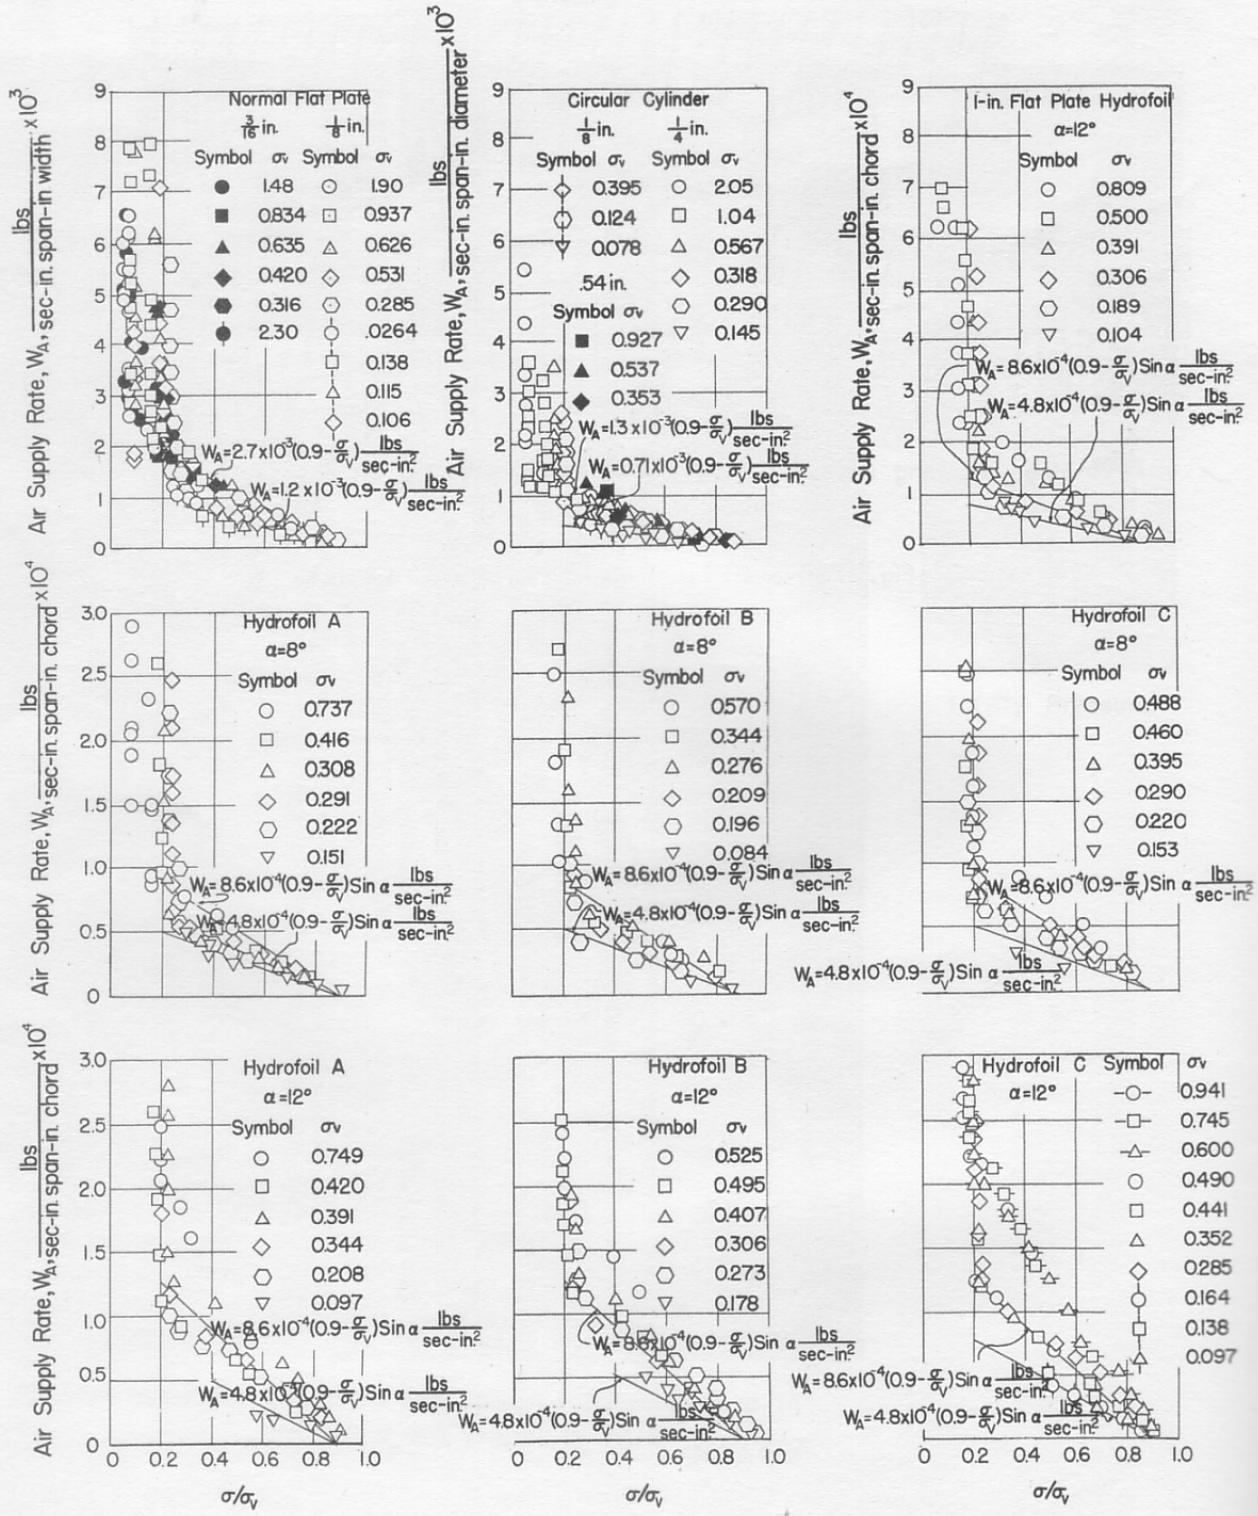 Air Supply Rate, W_A, lbs/sec-in. span-in width x10³
9
8
7
6
5
4
3
2
1
0
Normal Flat Plate
3/16 in. 1/8 in.
Symbol σᵥ Symbol σᵥ
1.48 1.90
0.834 0.937
0.635 0.626
0.420 0.531
0.316 0.285
2.30 .0264
0.138
0.115
0.106
W_A=2.7x10⁻³(0.9-σ/σᵥ) lbs/sec-in²
W_A=1.2 x10⁻³(0.9-σ/σᵥ) lbs/sec-in²
Air Supply Rate, W_A, lbs/sec-in. span-in. diameter x10³
9
8
7
6
5
4
3
2
1
0
Circular Cylinder
1/8 in. 1/4 in.
Symbol σᵥ Symbol σᵥ
0.395 2.05
0.124 1.04
0.078 0.567
.54 in. 0.318
Symbol σᵥ 0.290
0.927 0.145
0.537
0.353
W_A=1.3 x10⁻³(0.9-σ/σᵥ) lbs/sec-in²
W_A=0.71x10⁻³(0.9-σ/σᵥ) lbs/sec-in²
Air Supply Rate, W_A, lbs/sec-in. span-in. chord x10⁴
9
8
7
6
5
4
3
2
1
0
1-in. Flat Plate Hydrofoil
α=12°
Symbol σᵥ
0.809
0.500
0.391
0.306
0.189
0.104
W_A=8.6x10⁻⁴(0.9-σ/σᵥ)Sin α lbs/sec-in²
W_A=4.8x10⁻⁴(0.9-σ/σᵥ)Sin α lbs/sec-in²
Air Supply Rate, W_A, lbs/sec-in. span-in. chord x10⁴
3.0
2.5
2.0
1.5
1.0
0.5
0
Hydrofoil A
α=8°
Symbol σᵥ
0.737
0.416
0.308
0.291
0.222
0.151
W_A=8.6x10⁻⁴(0.9-σ/σᵥ)Sin α lbs/sec-in²
W_A=4.8x10⁻⁴(0.9-σ/σᵥ)Sin α lbs/sec-in²
Hydrofoil B
α=8°
Symbol σᵥ
0.570
0.344
0.276
0.209
0.196
0.084
W_A=8.6x10⁻⁴(0.9-σ/σᵥ)Sin α lbs/sec-in²
W_A=4.8x10⁻⁴(0.9-σ/σᵥ)Sin α lbs/sec-in²
Hydrofoil C
α=8°
Symbol σᵥ
0.488
0.460
0.395
0.290
0.220
0.153
W_A=8.6x10⁻⁴(0.9-σ/σᵥ)Sin α lbs/sec-in²
W_A=4.8x10⁻⁴(0.9-σ/σᵥ)Sin α lbs/sec-in²
Air Supply Rate, W_A, lbs/sec-in. span-in. chord x10⁴
3.0
2.5
2.0
1.5
1.0
0.5
0
Hydrofoil A
α=12°
Symbol σᵥ
0.749
0.420
0.391
0.344
0.208
0.097
W_A=8.6x10⁻⁴(0.9-σ/σᵥ)Sin α lbs/sec-in²
W_A=4.8x10⁻⁴(0.9-σ/σᵥ)Sin α lbs/sec-in²
0 0.2 0.4 0.6 0.8 1.0
σ/σᵥ
Hydrofoil B
α=12°
Symbol σᵥ
0.525
0.495
0.407
0.306
0.273
0.178
W_A=8.6x10⁻⁴(0.9-σ/σᵥ)Sin α lbs/sec-in²
W_A=4.8x10⁻⁴(0.9-σ/σᵥ)Sin α lbs/sec-in²
0 0.2 0.4 0.6 0.8 1.0
σ/σᵥ
Hydrofoil C Symbol σᵥ
α=12°
0.941
0.745
0.600
0.490
0.441
0.352
0.285
0.164
0.138
0.097
W_A=8.6x10⁻⁴(0.9-σ/σᵥ)Sin α lbs/sec-in²
W_A=4.8x10⁻⁴(0.9-σ/σᵥ)Sin α lbs/sec-in²
0 0.2 0.4 0.6 0.8 1.0
σ/σᵥ